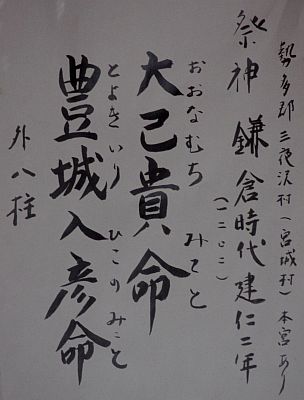 勢多郡三夜沢村(宮城村)本宮あり
祭神 鎌倉時代 建仁二年
(一二〇二)
おおなむち みこと
大己貴命
とよきいり ひこのみこと
豊城入彦命
外八柱